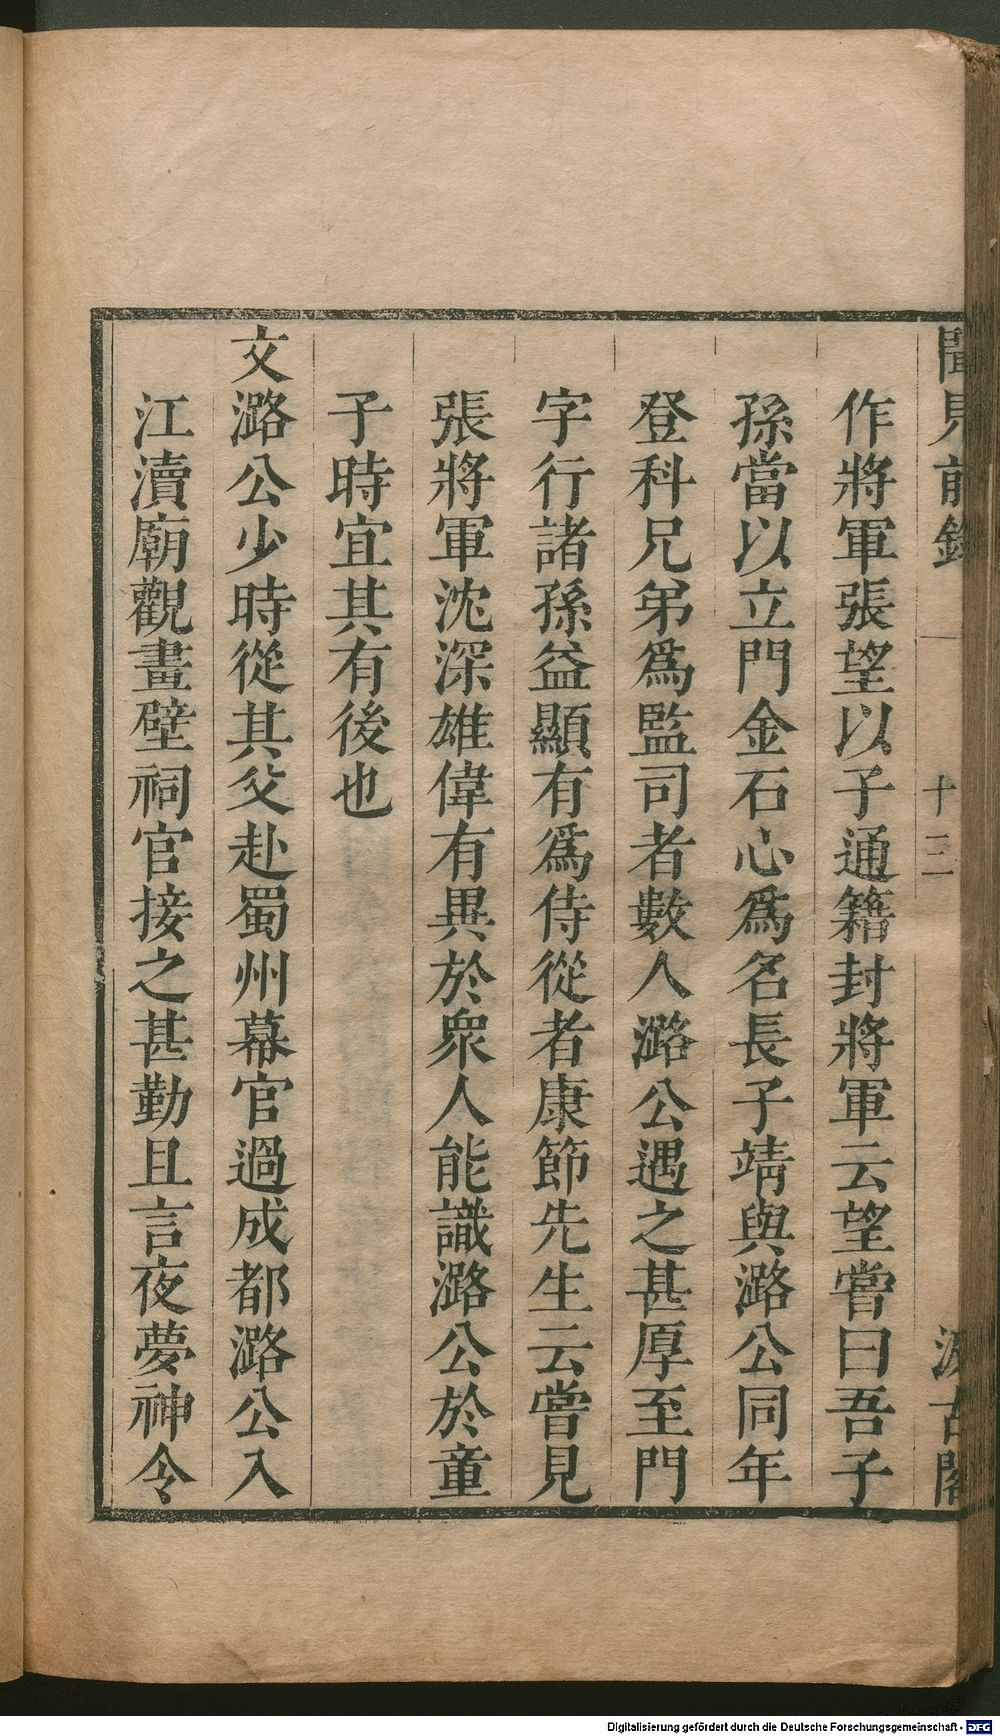 聞見前錄
十三
汲古閣
作將軍張望以子通籍封將軍云望嘗曰吾子
孫當以立門金石心爲名長子靖與潞公同年
登科兄弟爲監司者數人潞公遇之甚厚至門
字行諸孫益顯有爲侍從者康節先生云嘗見
張將軍沈深雄偉有異於衆人能識潞公於童
子時宜其有後也
文潞公少時從其父赴蜀州幕官過成都潞公入
江瀆廟觀畫壁祠官接之甚勤且言夜夢神令
Digitalisierung gefördert durch die Deutsche Forschungsgemeinschaft - DFG